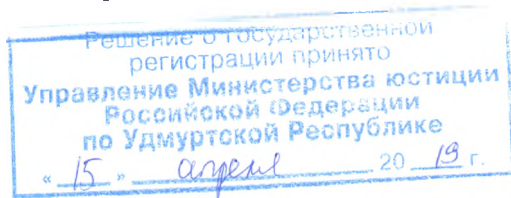 Решение о государственной
регистрации принято
Управление Министерства юстиции
Российской Федерации
по Удмуртской Республике
« 15 » апреля 20 19 г.